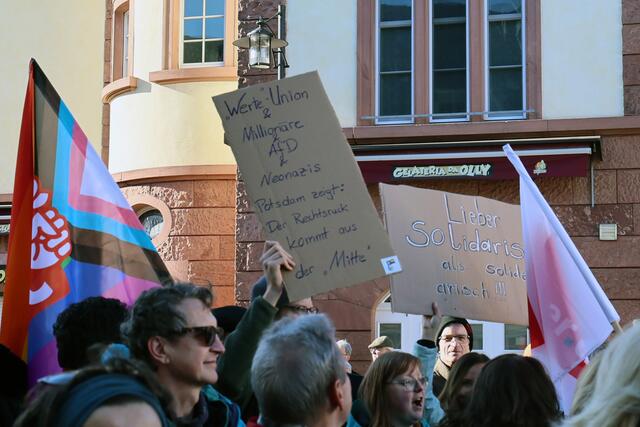 "Werte"Union
&
Millionäre
&
AfD
&
Neonazis
Potsdam zeigt:
Der Rechtsruck
kommt aus
der „Mitte"
GELATERIA DA OLLY
Lieber
Solidaris
als solide
arisch !!!